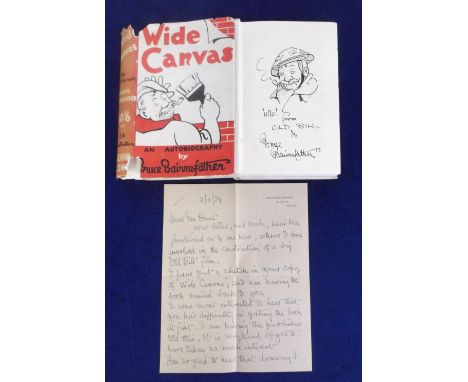 Wide
Canvas
AN AUTOBIOGRAPHY
by
Bruce Bairnsfather
10/6
JOHN
LONG
from
OLD BILL
by
Bruce
Bairnsfather
9/1/39
Dear
Your letter, and book, have been
forwarded on to me here, where I am
involved in the construction of a big
"Old Bill" film.
I have put a sketch in your copy
of Wide Canvas, and am having the
book mailed back to you
I was most interested to hear that
you had difficulty in getting the book
at first. I am having the publisher
told this. It is very kind of you to
have taken so much interest
Am so glad to hear that drawing I